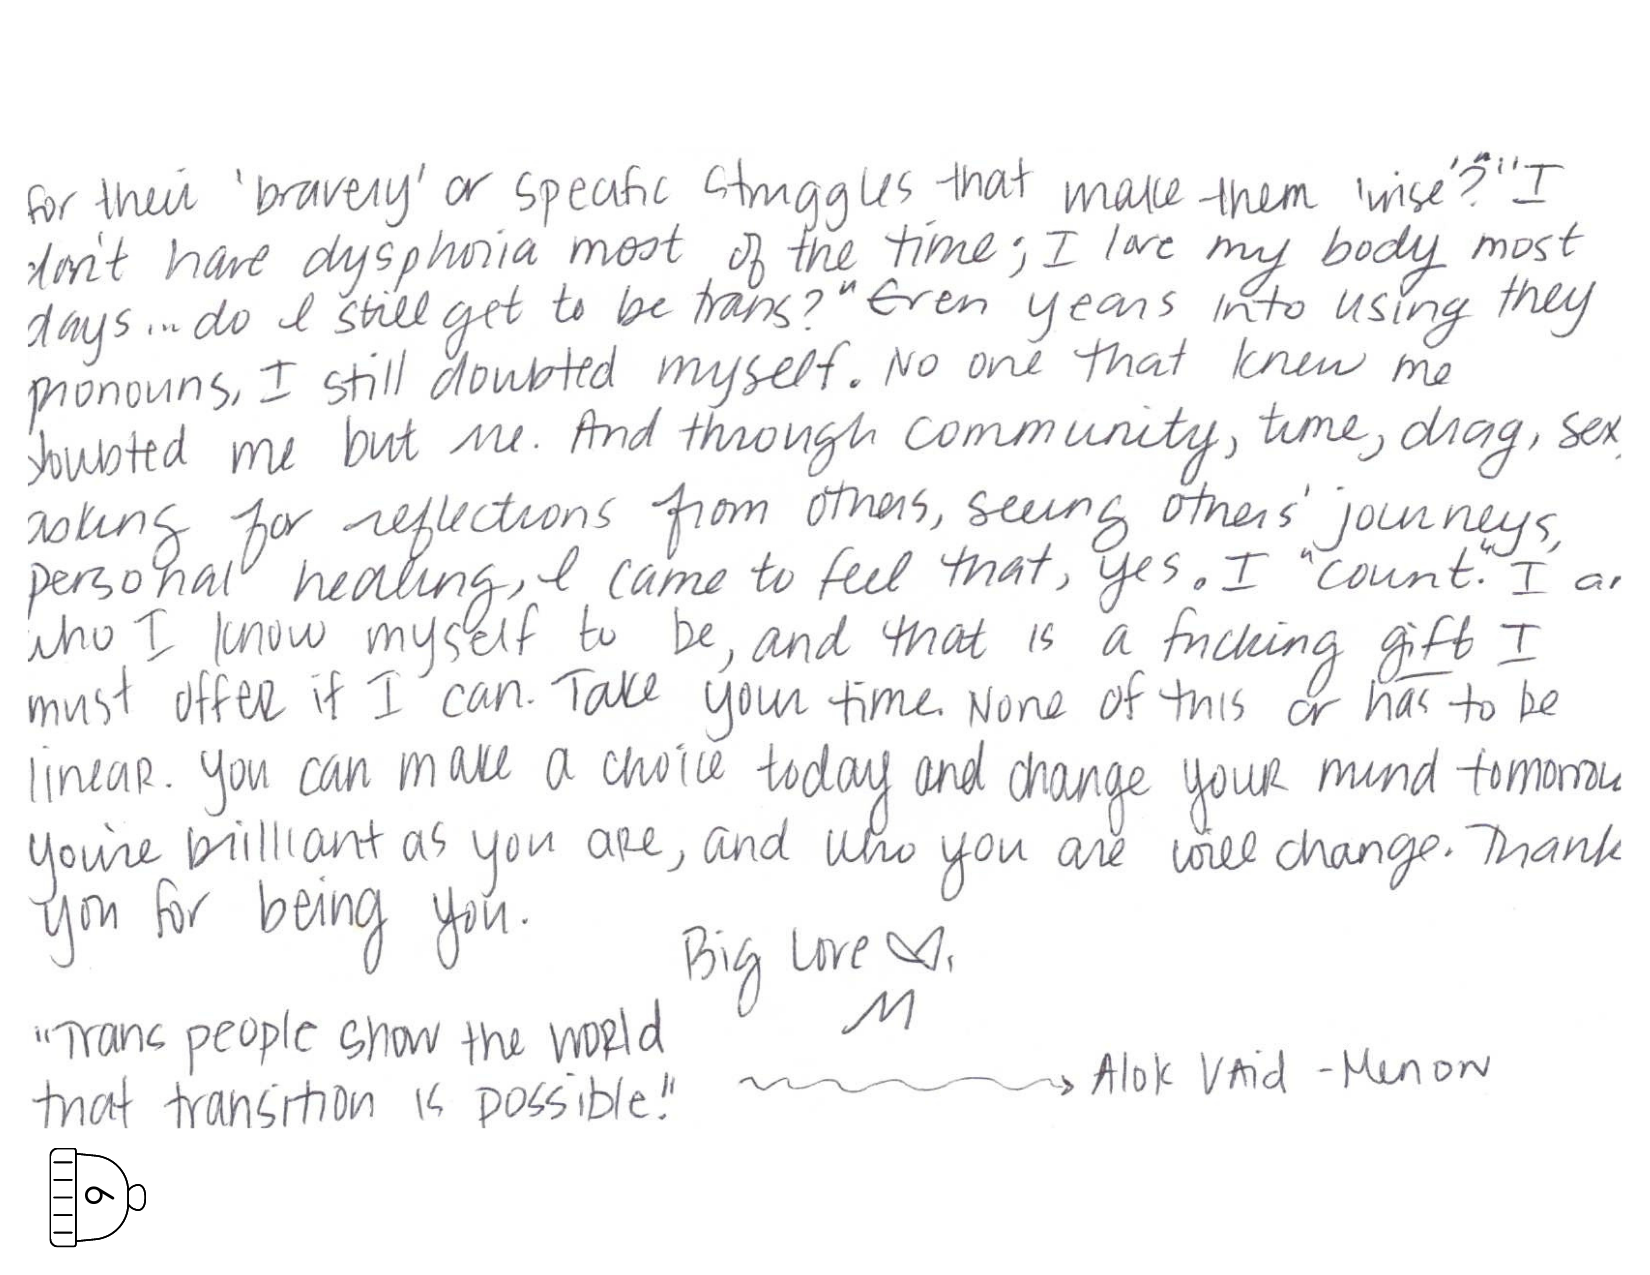 for their 'bravery' or specific struggles that make them 'wise'?" "I
don't have dysphoria most of the time; I love my body most
days... do I still get to be trans?" Even years into using they
pronouns, I still doubted myself. No one that knew me
doubted me but me. And through community, time, drag, sex,
asking for reflections from others, seeing others' journeys,
personal healing, I came to feel that, yes. I "count." I a
who I know myself to be, and that is a fucking gift I
must offer if I can. Take your time. None of this or has to be
linear. You can make a choice today and change your mind tomorrow
You're brilliant as you are, and who you are will change. Thank
you for being you.
Big Love ♡,
M
"Trans people show the world
that transition is possible!"
Alok Vaid-Menon
6